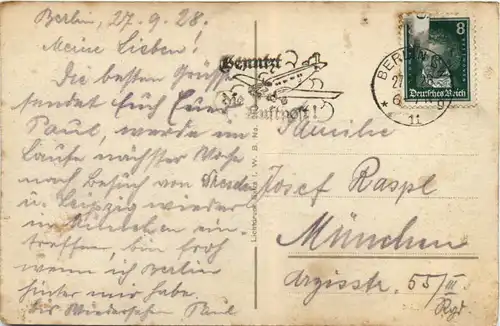 Berlin, 27.9.28.
Meine Lieben!
Die besten Grüße
sendet Euch Euer
Paul, werde im
Laufe nächster Woche
nach Besuch von Dresden
u. Leipzig wieder
in München ein-
treffen, bin froh
wenn ich Berlin
hinter mir habe.
Auf Wiedersehen Paul
Benutzt
die
Luftpost!
BERLIN
27
11
8
Deutsches Reich
Familie
Josef Raspl
München
55/III